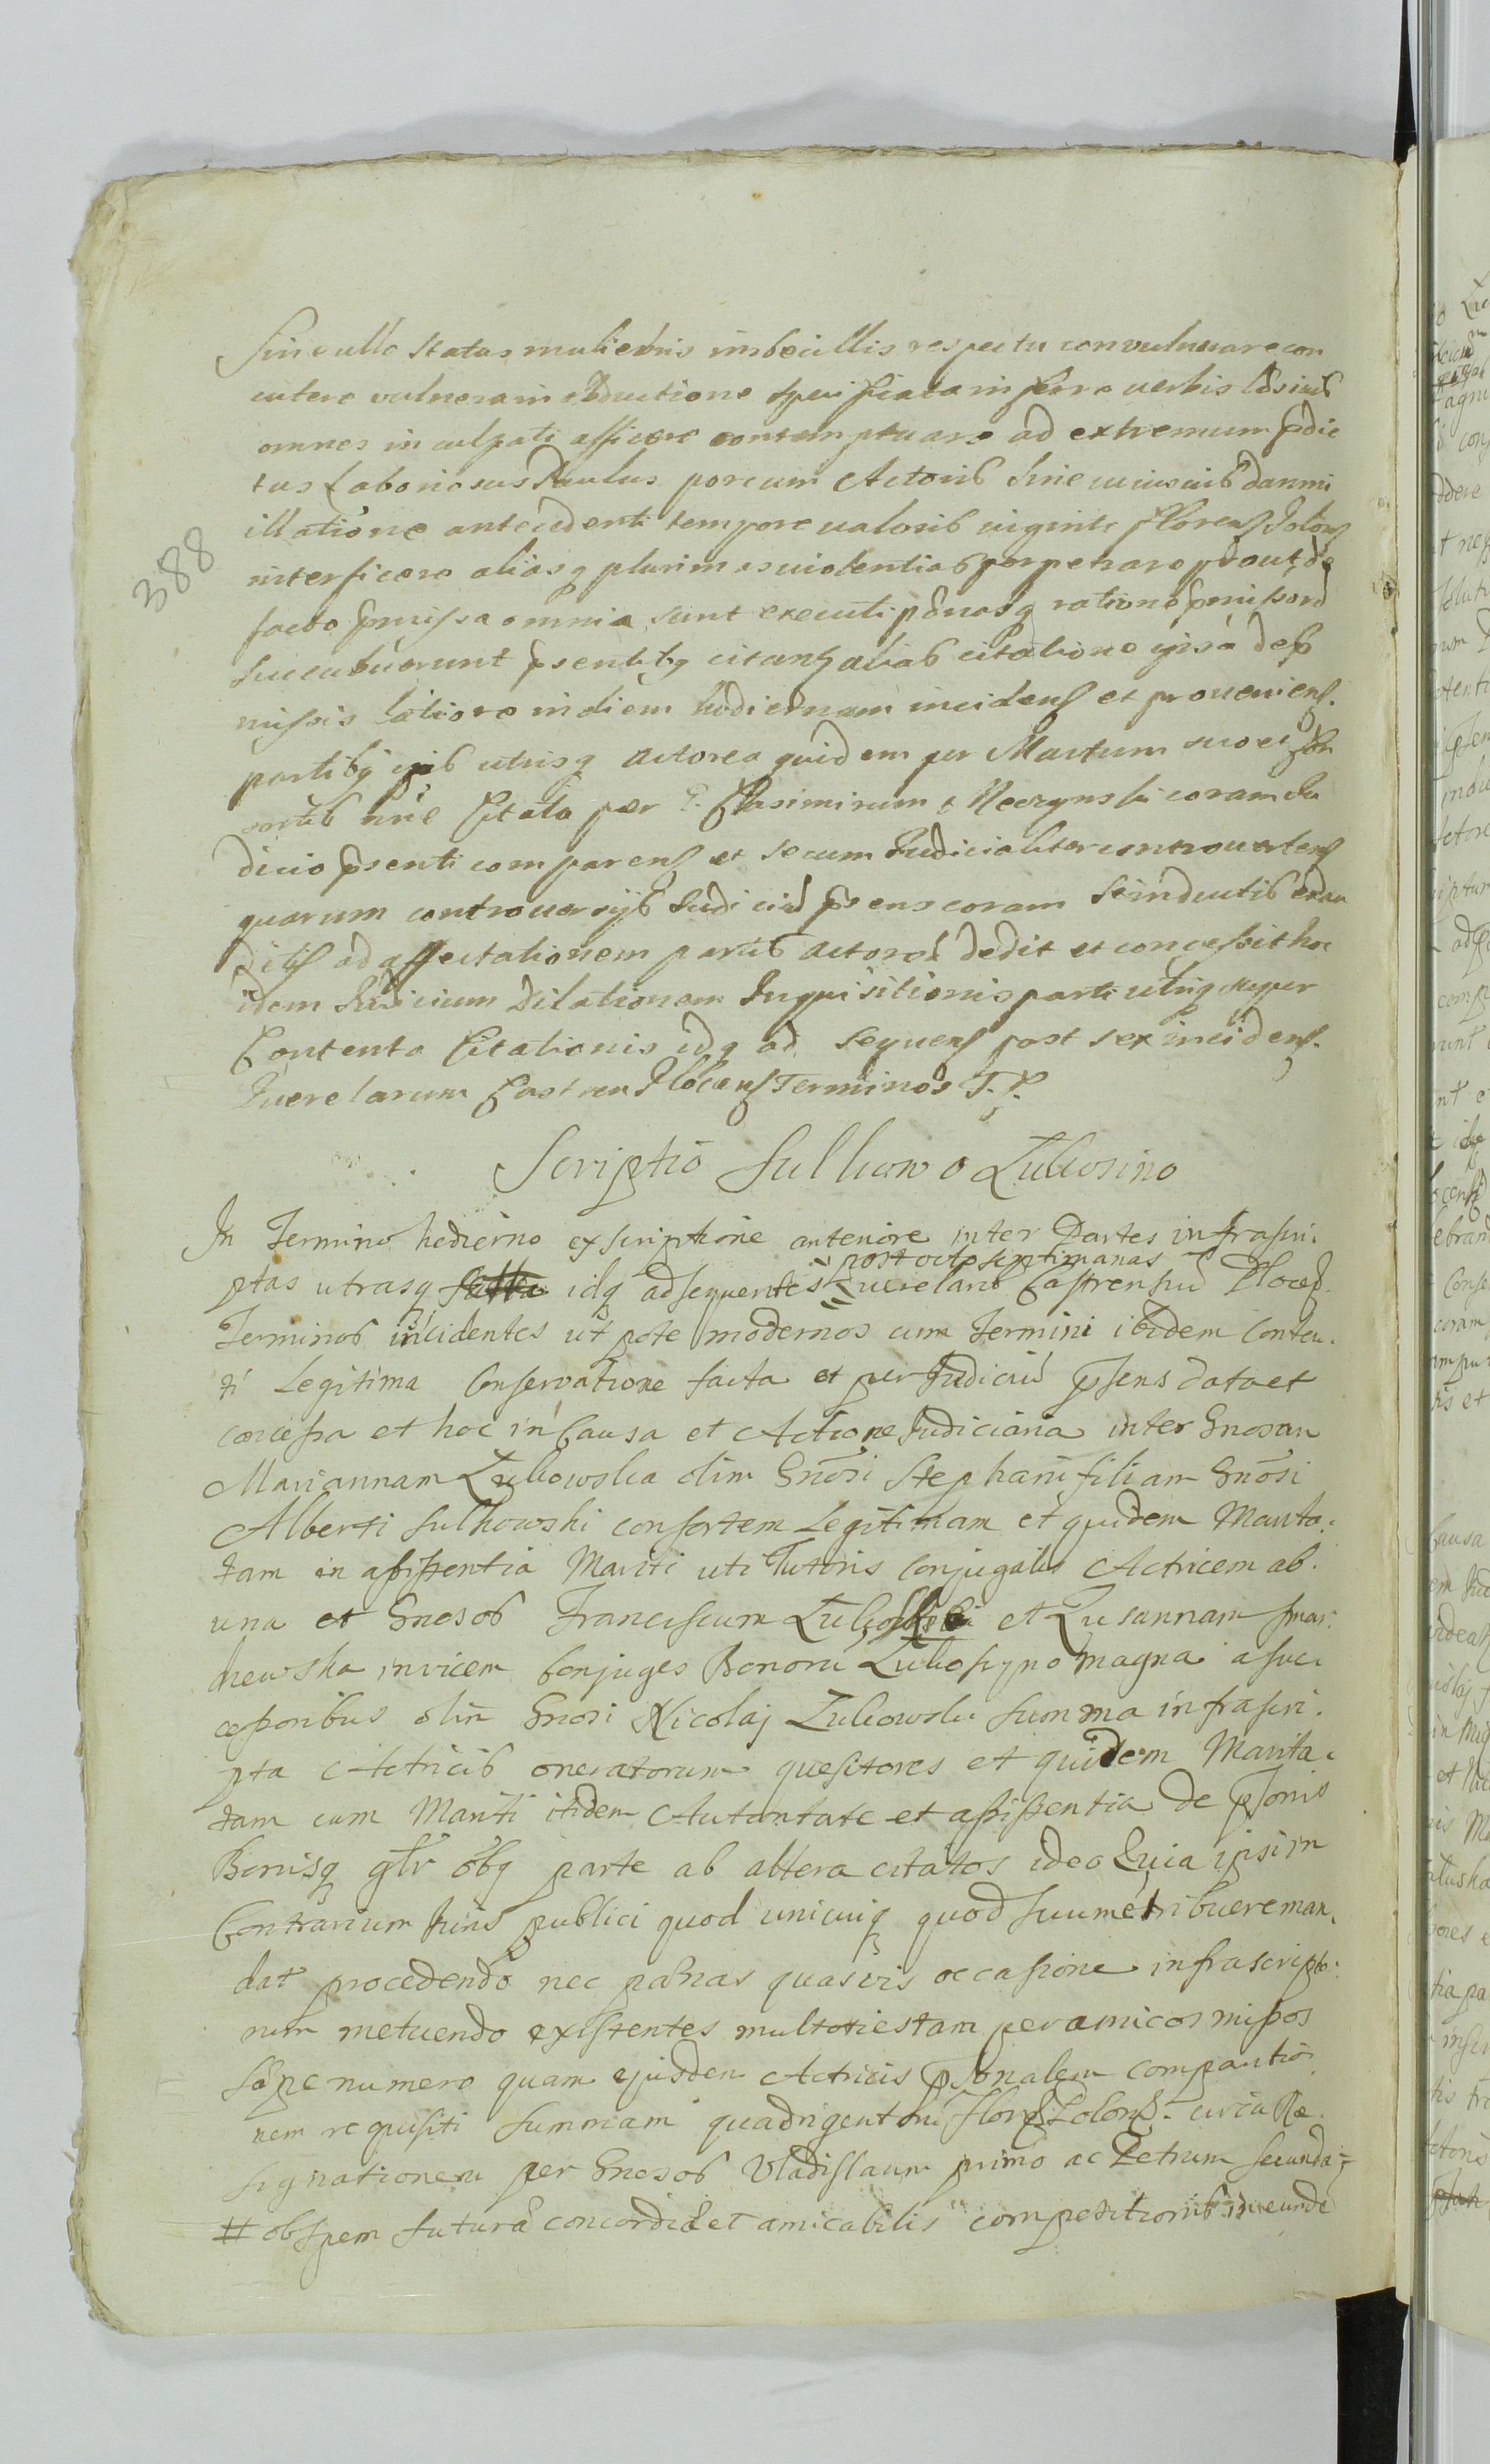 Sine ullo status muliebris imbecillis respectu convulnerare con
cutere vulnera in obductione specificata inferre verbis
omnes inculpate afficere contemptuare ad extremum pdic
tus Laboriosus Paulus porcum Actoris sine cuiusvis damni
388
illatione antecedenti tempore valoris viginti floren Polon
interficere aliasq plurimas violentias perpetrare prout de
facto pmissa omnia sunt executi pænasq ratione pmissor
succubuerunt psentibq citan alias citatione ipsa de p
missis latiore in diem hodiernam inciden et provenien.
partibq ipsis utrisq Actorea quidem per Martum suo et
nne Citata per Casimirum Neczynski coram Ju
dicio psenti comparen et secum Judicialiter controverten
quarum controversijs Judiciu psens coram se inductis exau
ditis ad affectationem partis Actoreæ dedit et concessit hoc
idem Judicium Dilationem Inquisitionis parti utriq super
Contenta Citationis idq ad sequen post sex inciden.
Querelarum Castren Plocen Terminos T. P.
Scriptio Sulkow o Lukosino
In Termino hodierno ex scriptione anteriore inter Partes infrascri
post octo septimanas
ptas utrasq idq ad sequentes Querelarus Castrensiu Ploceñ.
Terminos incidentes utpote modernos cum Termini ibidem Conten.
ti Legitima Conservatione facta et per Judiciu psens data et
concessa et hoc in Causa et Actione Judiciaria inter Gnosam
Mariannam Lukowska olim Gnosi Stephani filiam Gnosi
Alberti Sulkowski consortem Legitimam et quidem Marita:
tam in assistentia Mariti uti Tutoris Conjugalis Actricem ab.
una et Gnosos Franciscum et Zusannam Smar:
hewska invicem Conjuges Bonoru Lukoszyno magna a suc:
cessoribus olim Gnosi Nicolaj Lukowski summa infrascri.
pta Actricis oneratorum quesitores et quidem Marita:
tam cum Mariti itidem Autoritate et assistentia de psonis
Bonisq gltr obq parte ab altera citatos ideo Quia ipsi in
Contrarium Juris publici quod unicuiq quod suum e tribuere man.
dat procedendo nec pænas quasvis occasione infrascripto:
rum metuendo existentes multoties tam per amicos missos
sæpenumero quam ejusdem Actricis psonalem comparitio
nem requisiti summam quadrigentoru floren Polon. circa Re.
signationem per Gnosos Vladislaum primo ac Petrum secunda=
# ob spem futuræ concordiæ et amicabilis compositionis ineundæ